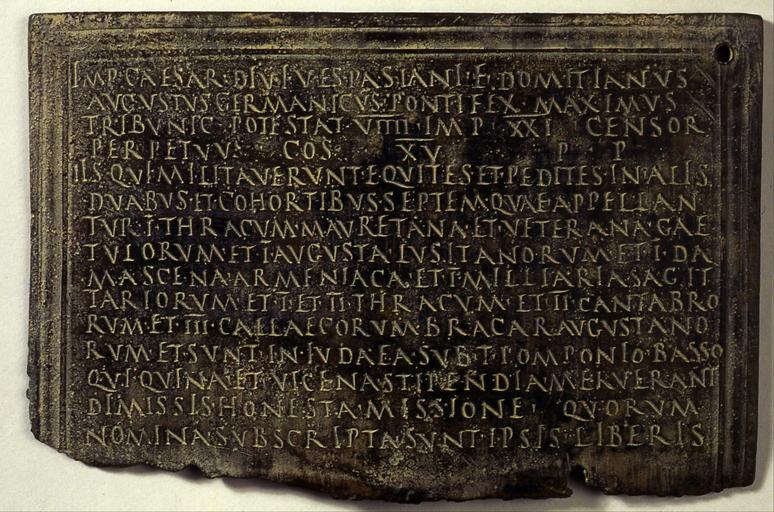 IMP·CAESAR·DIVI·VESPASIANI·F·DOMITIANVS
AVGVSTVS GERMANICVS·PONTIFEX MAXIMVS
TRIBVNIC POTESTAT·VIIII·IMP XXI CENSOR
PERPETVVS COS XV P P
IIS QVI MILITAVERVNT EQVITES·ET·PEDITES·IN·ALIS
DVABVS·ET·COHORTIBVS·SEPTEM·QVAE·APPELLAN
TVR·I·THRACVM·MAVRETANA·ET·VETERANA·GAE
TVLORVM·ET·I·AVGVSTA·LVSITANORVM·ET·I·DA
MASCENA·ARMENIACA·ET·I·MILLIARIA·SAGIT
TARIORVM·ET·I·ET·II·THRACVM·ET·II·CANTABRO
RVM·ET·III·CALLAECORVM·BRACARAVGVSTANO
RVM·ET·SVNT·IN·IVDAEA·SVB·T·POMPONIO·BASSO
QVI·QVINA·ET·VICENA·STIPENDIA·MERVERANT
DIMISSIS HONESTA·MISSIONE QVORVM
NOMINA·SVBSCRIPTA·SVNT·IPSIS·LIBERIS